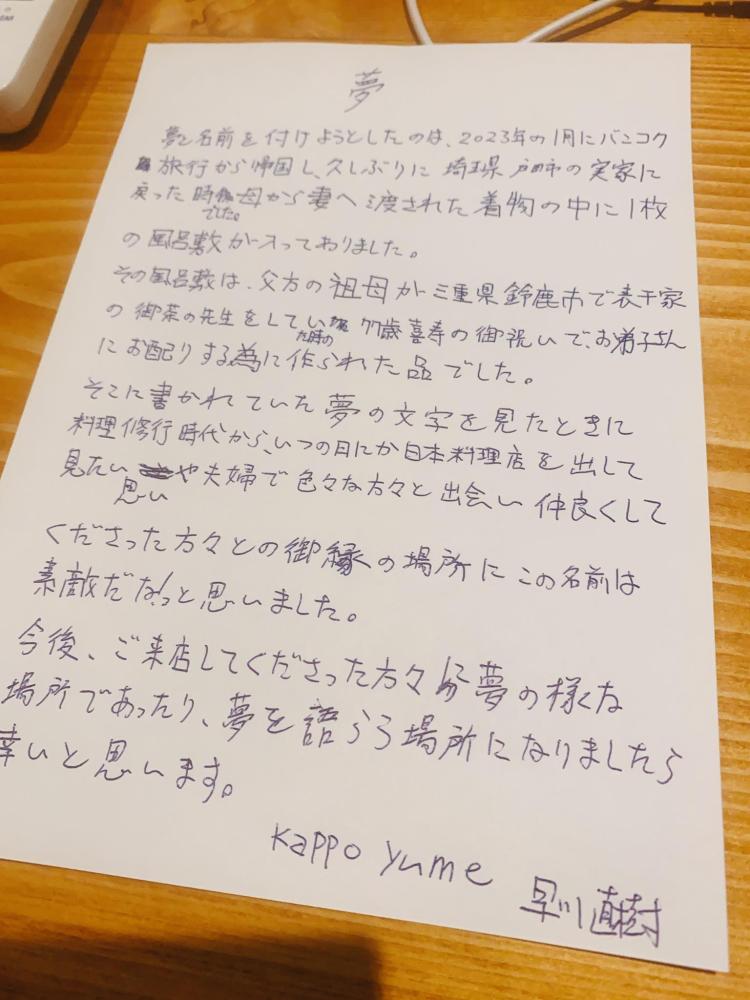 夢
夢と名前を付けようとしたのは、2023年の1月にバンコク
旅行から帰国し、久しぶりに 埼玉県 戸田市の実家に
戻った 時 母から妻へ渡された着物の中に1枚
でした。
の風呂敷が入っておりました。
その風呂敷は、父方の祖母が三重県鈴鹿市で表千家
の御茶の先生をしてい 77歳喜寿の御祝いで、お弟子さん
た時の
にお配りする為に作られた品でした。
そこに書かれていた夢の文字を見たときに
料理修行時代から、いつの日にか日本料理店を出して
見たい や夫婦で色々な方々と出会い仲良くして
思い
くださった方々との御縁の場所にこの名前は
素敵だな!っと思いました。
今後、ご来店してくださった方々が夢の様な
場所であったり、夢を語らう場所になりましたら
幸いと思います。
kappo yume
早川直樹